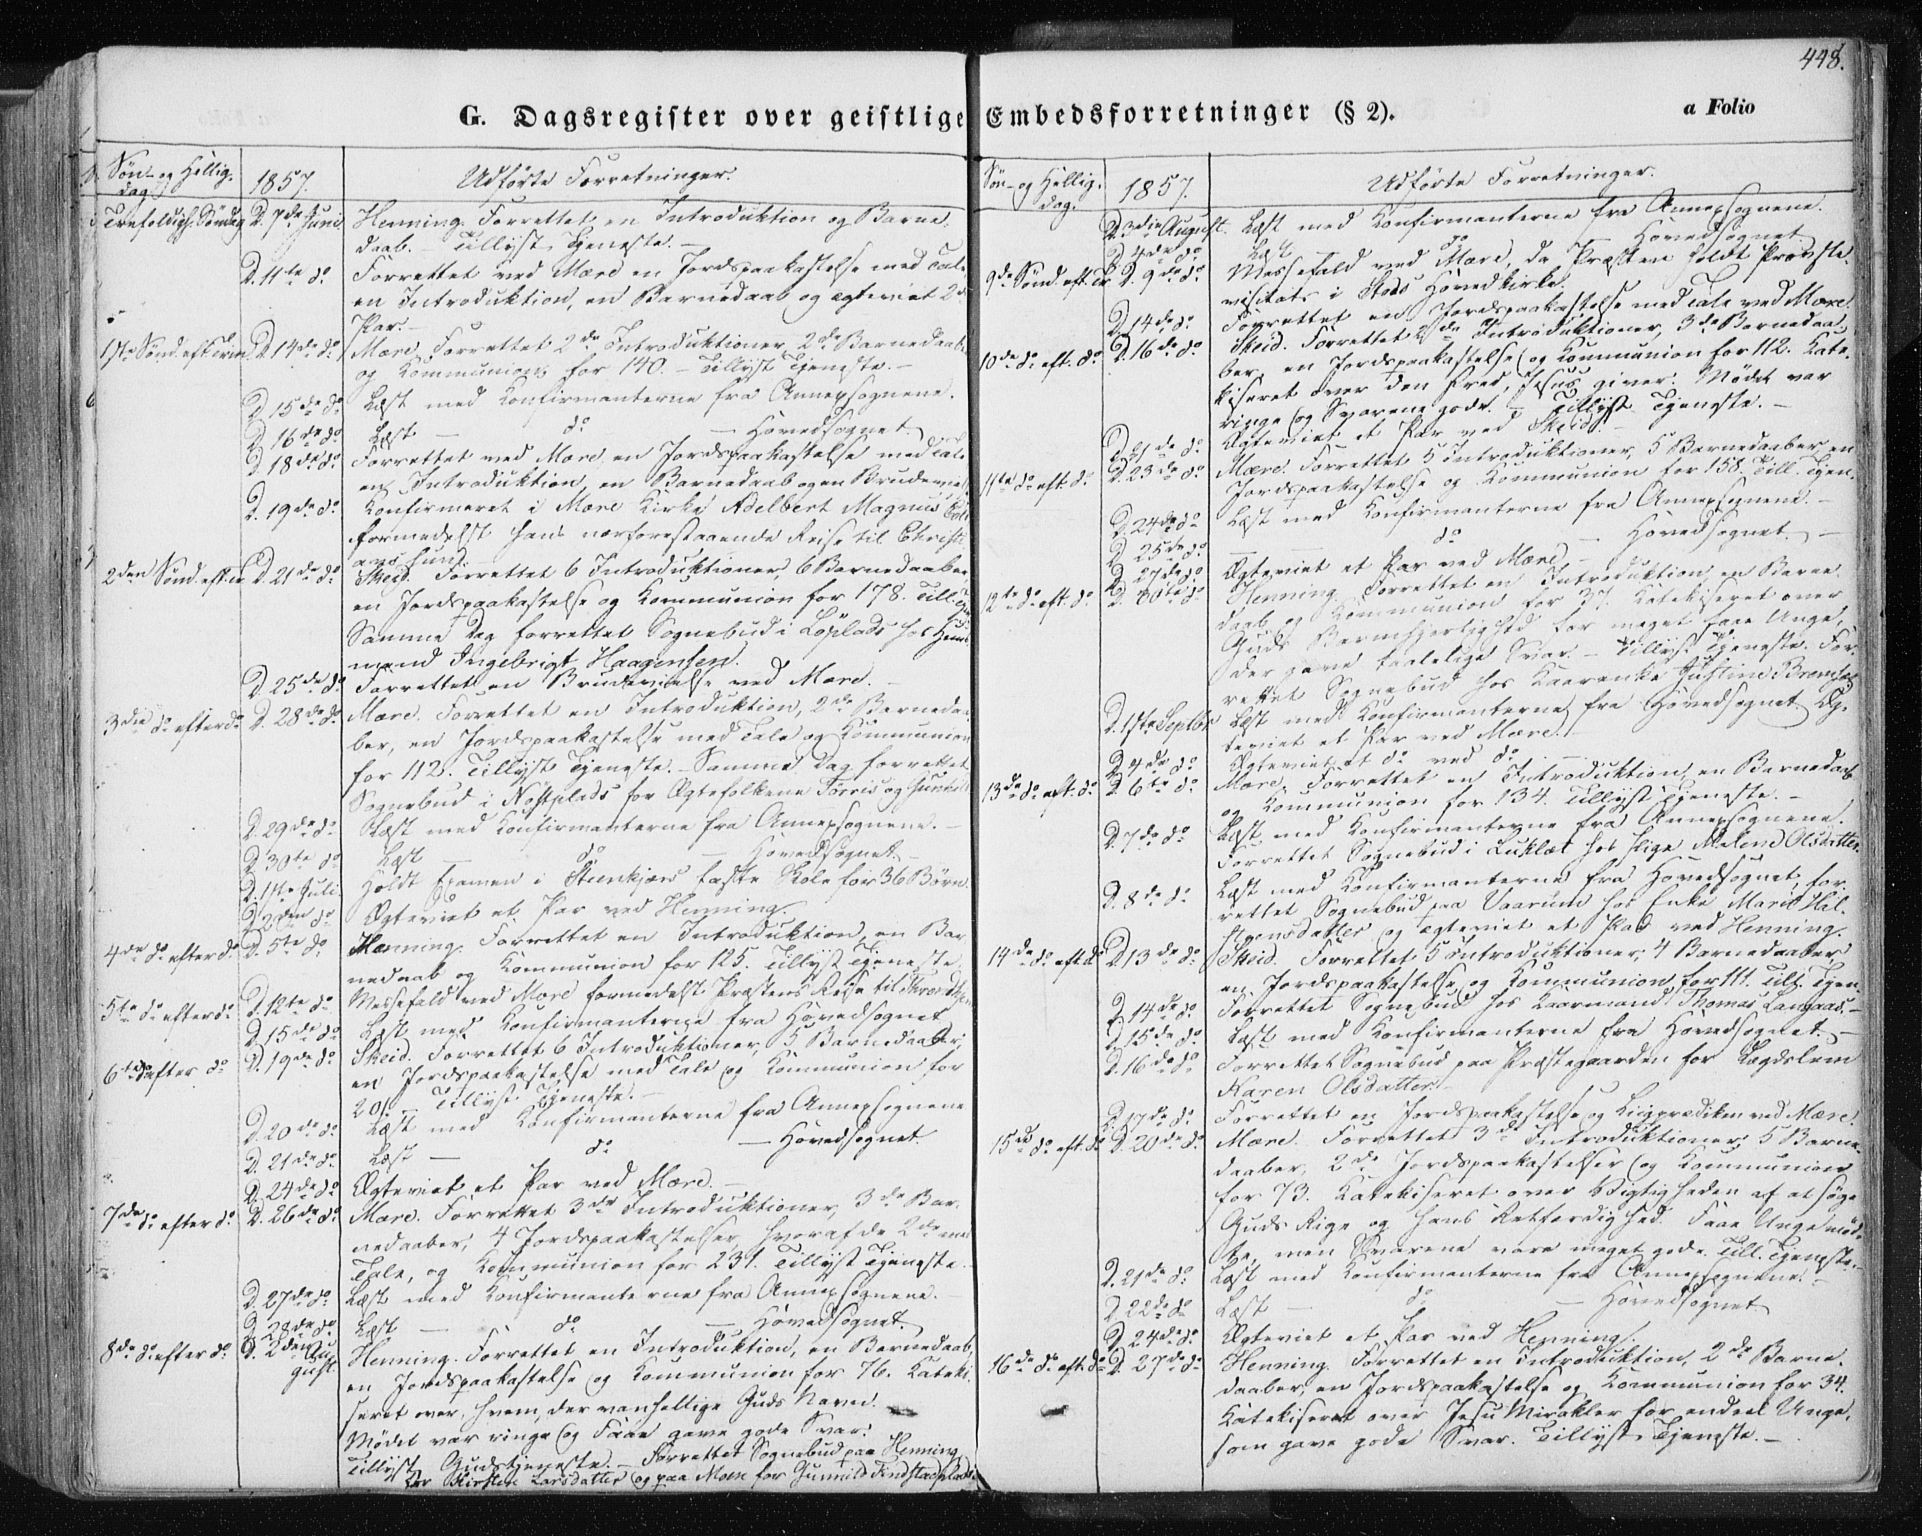 448.
G. Dagsregister over geistlige Embedsforretninger (§ 2).
a Folio
Søn- og Hellig-
dag.
1857.
Udførte Forretninger.
Trefoldigh. Søndag D. 7de Juni Henning. Forrettet en Introduktion og Barne-
daab. – Tillyst Tjeneste. –
D. 11te do Forrettet ved Mære en Jordspaakastelse med Tale
en Introduktion, en Barnedaab og ægteviet 2de
Par. –
1ste Sønd. eft. D. 14de do Mære. Forrettet 2de Introduktioner, 2de Barnedaabe
og Kommunion for 140. – Tillyst Tjeneste. –
D. 15de do Læst med Konfirmanterne fra Annexsognene.
D. 16de do Læst – do – Hovedsognet
D. 18de do Forrettet ved Mære en Jordspaakastelse med Tale
en Introduktion, en Barnedaab og en Brudevie
D. 19de do Konfirmeret i Mære Kirke Adelbert Magnus
formedelst hans nærforestaaende Reise til Christi
ans sund.
2den Sønd. eft. D. 21de do Skeid. Forrettet 6 Introduktioner, 6 Barnedaaber,
en Jordspaakastelse og Kommunion for 178. Till.
Samme Dag forrettet Sognebud i Løplads hos Huus
mand Ingebrigt Haagensen.
D. 25de do Forrettet en Brudevielse ved Mære. –
3die do efter do D. 28de do Mære. Forrettet en Introduktion, 2de Barnedaa
ber, en Jordspaakastelse med Tale og Kommunion
for 112. Tillyst Tjeneste. – Samme Dag forrettet
Sognebud i Nøstplads for Ægtefolkene Tørris og Gunhild
D. 29de do Læst med Konfirmanterne fra Annexsognene. –
D. 30te do Læst – do – Hovedsognet
D. 1ste Juli Holdt Examen i Steenkjærs faste Skole for 36 Børn.
D. 2den do Ægteviet et Par ved Henning.
4de do efter do D. 5te do Henning. Forrettet en Introduktion, en Bar
nedaab og Kommunion for 125. Tillyst Tjeneste
5te do efter do D. 12te do Messefald ved Mære formedelst Præstens Reise til Throndhjem
D. 15de do Læst med Konfirmanterne fra Hovedsognet
6te do efter do D. 19de do Skeid. Forrettet 6 Introduktioner, 5 Barnedaaber,
en Jordspaakastelse med Tale og Kommunion for
201. – Tillyst Tjeneste. –
D. 20de do Læst med Konfirmanterne fra Annexsognene
D. 21de do Læst – do – Hovedsognet
D. 24de do Ægteviet et Par ved Mære. –
7de do efter do D. 26de do Mære. Forrettet 3de Introduktioner, 3de Bar-
nedaaber, 4 Jordspaakastelser, hvoraf de 2de med
Tale, og Kommunion for 231. Tillyst Tjeneste.
D. 27de do Læst med Konfirmanterne fra Annexsognene. –
D. 28de do Læst – do – Hovedsognet.
8de do efter do D. 2den Au-
gust. Henning. Forrettet en Introduktion, en Barnedaab,
en Jordspaakastelse og Kommunion for 76. Kateki-
seret over, hvem, der vanhellige Guds Navn.
Mødet var ringe og Faae gave gode Svar.
Tillyst Gudstjeneste. – Forrettet Sognebud paa Henning
for Kirsten Larsdatter og paa Moen for Gunnild Findstadplads
Søn- og Hellig-
dag.
1857.
Udførte Forretninger.
D. 3die August. Læst med Konfirmanterne fra Annexsognene.
D. 4de do Læst – do – Hovedsognet
9de Sønd. eft. Tr. D. 9de do Messefald ved Mære, da Præsten holdt Provste-
visitats i Stods Hovedkirke.
D. 14de do Forrettet en Jordspaakastelse med Tale ved Mære.
10de do eft. do D. 16de do Skeid. Forrettet 2de Introduktioner, 3de Barnedaa-
ber, en Jordspaakastelse og Kommunion for 112. Kate-
kiseret over den Fred, Jesus giver. Mødet var
ringe og Svarene gode. – Tillyst Tjeneste. –
D. 21de do Ægteviet et Par ved Skeid. –
11te do eft. do D. 23de do Mære. Forrettet 5 Introduktioner, 5 Barnedaaber, en
Jordspaakastelse og Kommunion for 158. Till. Tjen.
D. 24de do Læst med Konfirmanterne fra Annexsognene. –
D. 25de do – do – Hovedsognet. –
D. 27de do Ægteviet et Par ved Mære. –
12te do eft. do D. 30te do Henning. Forrettet en Introduktion, en Barne-
daab og Kommunion for 37. Katekiseret over
Guds Barmhjertighed for meget faae Unge,
der gave taalelige Svar. – Tillyst Tjeneste. For-
rettet Sognebud hos Kaarenke Justine
D. 1ste Septbr Læst med Konfirmanterne fra Hovedsognet. Æg-
teviet et Par ved Mære. –
D. 4de do Ægteviet et do ved do –
13de do eft. do D. 6te do Mære. Forrettet en Introduktion, en Barnedaab
og Kommunion for 134. Tillyst Tjeneste. –
D. 7de do Læst med Konfirmanterne fra Annexsognene.
Forrettet Sognebud i Luklæt hos Pige Malene Olsdatter
D. 8de do Læst med Konfirmanterne fra Hovedsognet, for-
rettet Sognebud paa Vaarum hos Enke Marit Hal-
stensdatter og ægteviet et Par ved Henning.
14de do eft. do D. 13de do Skeid. Forrettet 5 Introduktioner, 4 Barnedaaber
en Jordspaakastelse og Kommunion for 111. Till. Tjen.
D. 14de do Forrettet Sognebud hos Kaarmand Thomas Langaas. –
D. 15de do Læst med Konfirmanterne fra Hovedsognet. –
D. 16de do Forrettet Sognebud paa Præstegaarden for Lægdslem
Karen Olsdatter. –
D. 17de do Forrettet en Jordspaakastelse og Liigprædiken ved Mære.
15de do eft. do D. 20de do Mære. Forrettet 3de Introduktioner, 5 Barne-
daaber, 2de Jordspaakastelser og Kommunion
for 73. Katekiseret over Vigtigheden af at søge
Guds Rige og hans Retfærdighed. Faae Unge mød-
te, men Svarene vare meget gode. Till. Tjeneste. –
D. 21de do Læst med Konfirmanterne fra Annexsognene. –
D. 22de do Læst – do – Hovedsognet
D. 24de do Ægteviet et Par ved Henning.
16de do eft. do D. 27de do Henning. Forrettet en Introduktion, 2de Barne-
daaber, en Jordspaakastelse og Kommunion for 34.
Katekiseret over Jesu Mirakler for endeel Unge,
som gave gode Svar. Tillyst Tjeneste. –